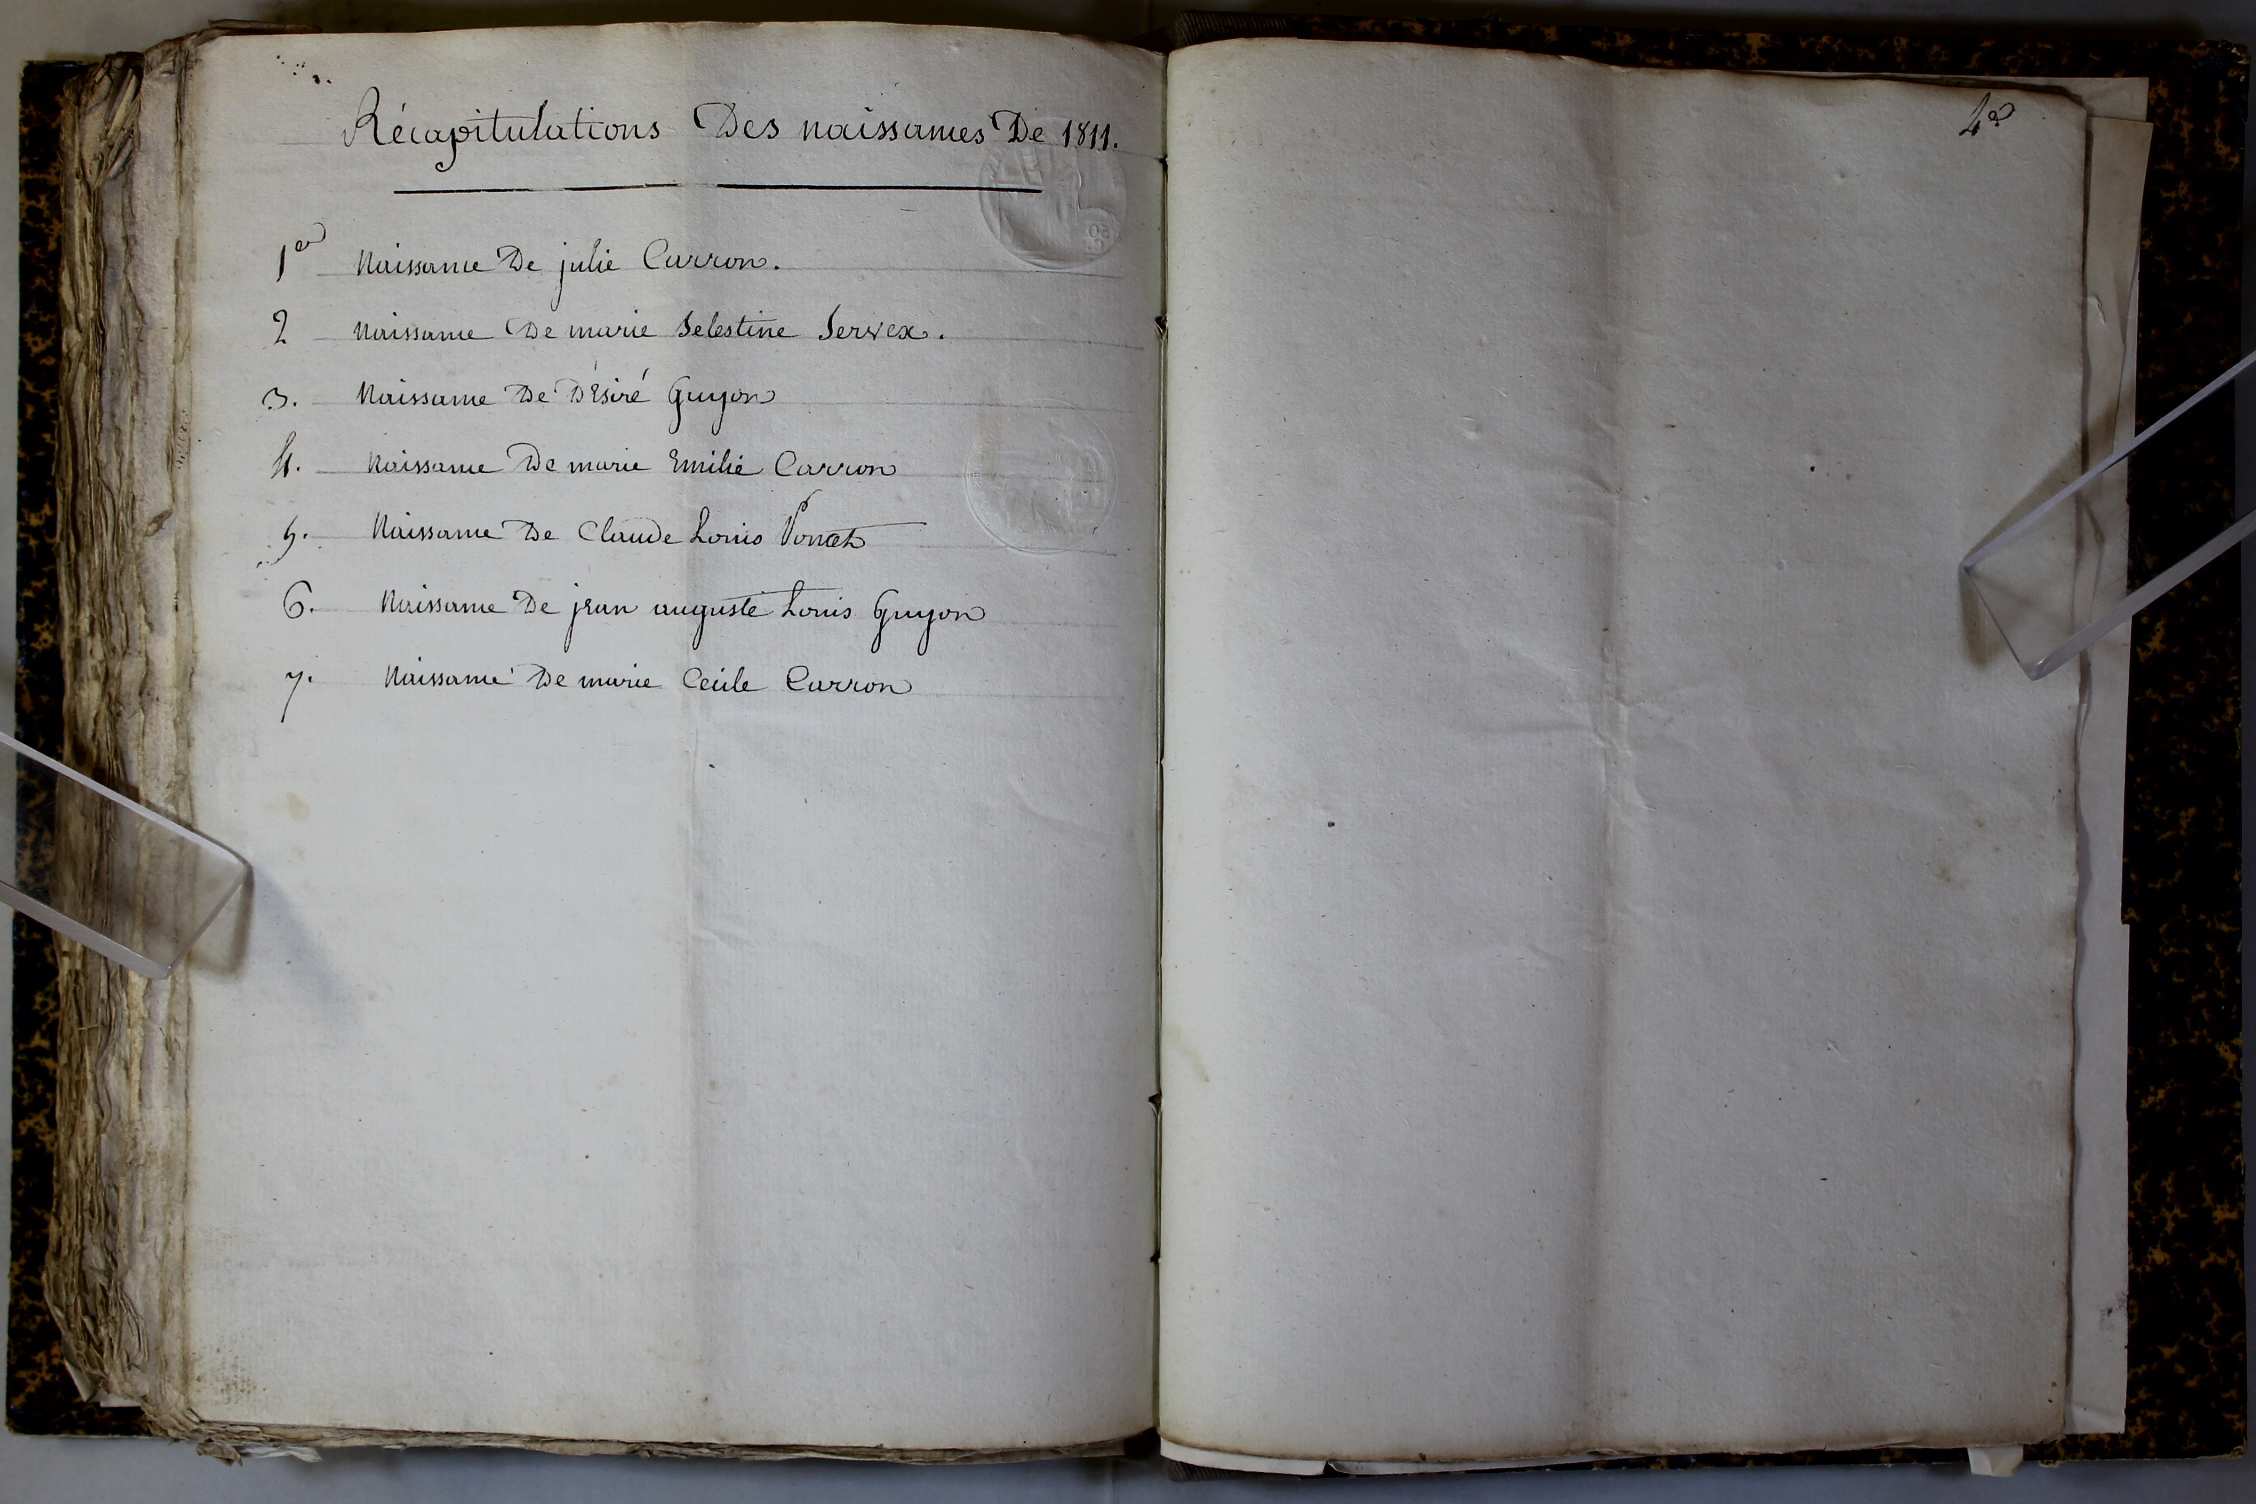 Récapitulations Des naissances De 1811.
1er Naissance De julie Carron.
2 Naissance De marie Selestine Servex.
3. Naissance De Désiré Guyon
4. Naissance De marie Emilie Carron
5. Naissance De Claude Louis
6. Naissance De jean auguste Louis Guyon
7. Naissance De marie Cecile Carron